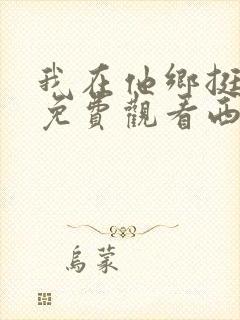 我在他鄉挺
免費觀看西
烏蒙